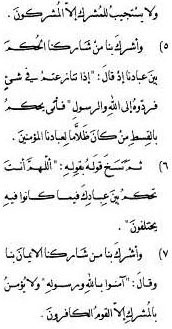 ولا يستجيب للمشرك إلّا المشركون .
٥) وأشرك بنا من شاركنا الحكم
بين عبادنا إذ قال: "إذا تنازعتم في شئ
فردّوه إلى الله والرسول" فأنّى يحكم
بالقسط من كان ظلّاما لعبادنا المؤمنين .
٦) ثم نسخ قوله بقوله: "اللهم أنت
تحكم بين عبادك فيما كانوا فيه
يختلفون" .
٧) وأشرك بنا من شاركنا الايمان بنا
وقال: "آمنوا بالله ورسوله" ولا يؤمن
بالمشرك إلّا القوم الكافرون .